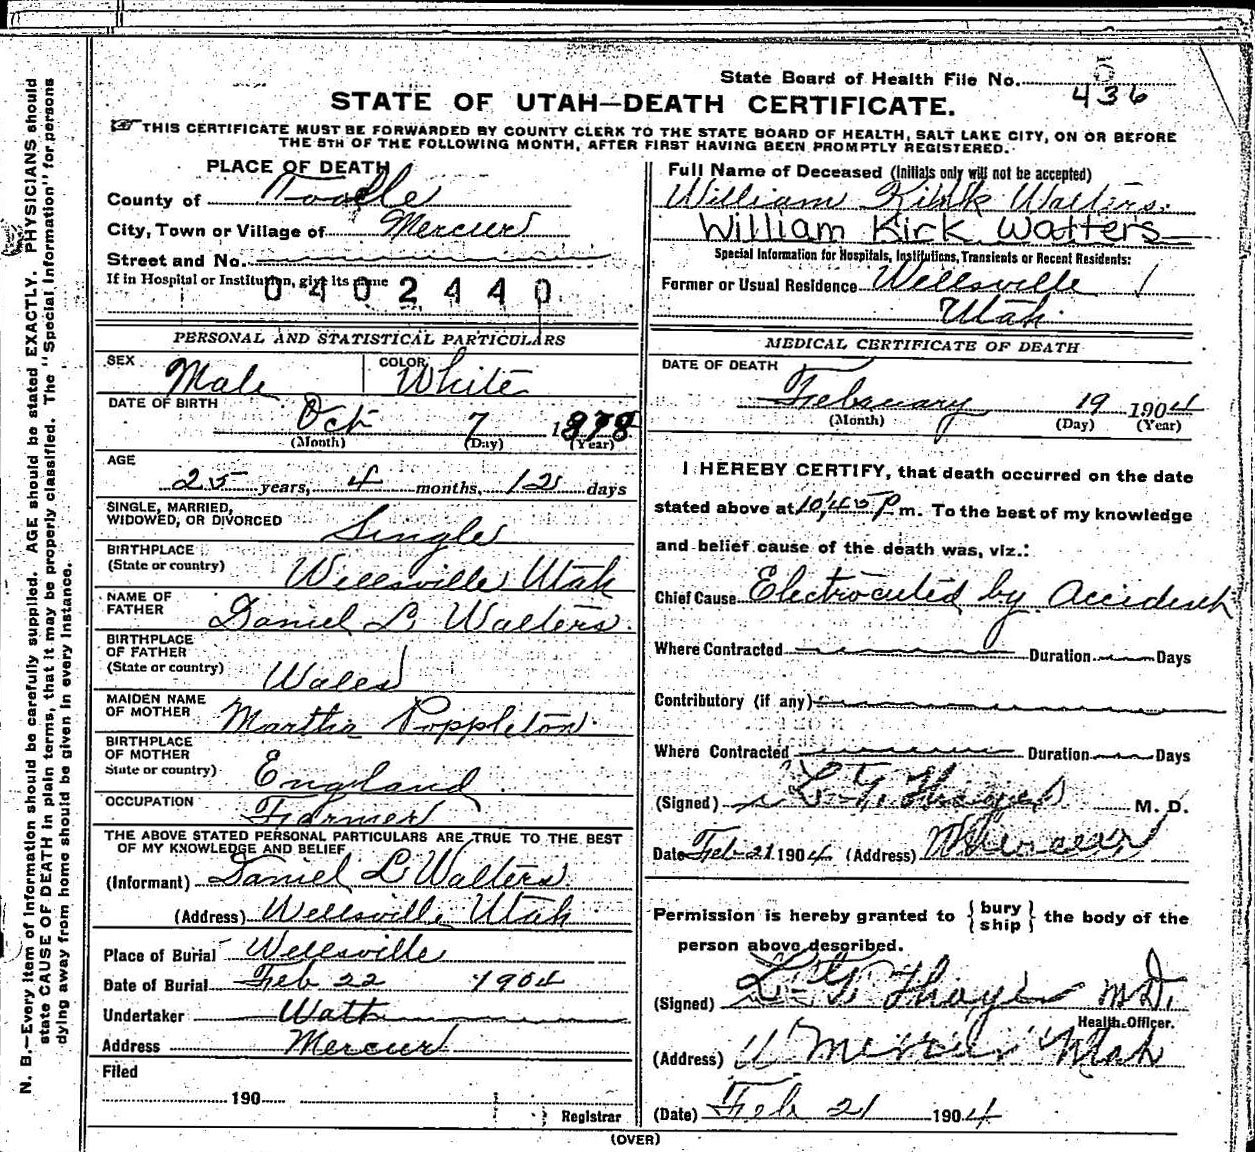 State Board of Health File No. 436
STATE OF UTAH—DEATH CERTIFICATE.
THIS CERTIFICATE MUST BE FORWARDED BY COUNTY CLERK TO THE STATE BOARD OF HEALTH, SALT LAKE CITY, ON OR BEFORE
THE 5TH OF THE FOLLOWING MONTH, AFTER FIRST HAVING BEEN PROMPTLY REGISTERED.
PLACE OF DEATH
County of Tooele
City, Town or Village of Mercur
Street and No.
If in Hospital or Institution, give its name
0402440
PERSONAL AND STATISTICAL PARTICULARS
SEX Male COLOR White
DATE OF BIRTH Oct 7 1878
(Month) (Day) (Year)
AGE
25 years, 4 months, 12 days
SINGLE, MARRIED,
WIDOWED, OR DIVORCED Single
BIRTHPLACE
(State or country) Wellsville Utah
NAME OF
FATHER Daniel L Walters
BIRTHPLACE
OF FATHER
(State or country) Wales
MAIDEN NAME
OF MOTHER Martha Poppleton
BIRTHPLACE
OF MOTHER
State or country) England
OCCUPATION Farmer
THE ABOVE STATED PERSONAL PARTICULARS ARE TRUE TO THE BEST
OF MY KNOWLEDGE AND BELIEF
(Informant) Daniel L Walters
(Address) Wellsville Utah
Place of Burial Wellsville
Date of Burial Feb 22 1904
Undertaker Watt
Address Mercur
Filed
190
Registrar
Full Name of Deceased (Initials only will not be accepted)
William Kirk Walters.
William Kirk Watters
Special Information for Hospitals, Institutions, Transients or Recent Residents:
Former or Usual Residence Wellsville
Utah
MEDICAL CERTIFICATE OF DEATH
DATE OF DEATH
February 19 1904
(Month) (Day) (Year)
I HEREBY CERTIFY, that death occurred on the date
stated above at 10,45 P m. To the best of my knowledge
and belief cause of the death was, viz.:
Chief Cause Electrocuted by Accident
Where Contracted Duration Days
Contributory (if any)
Where Contracted Duration Days
(Signed) L G Thayer M. D.
Date Feb 21 1904 (Address) Mercur
Permission is hereby granted to {bury
ship} the body of the
person above described.
(Signed) L G Thayer M.D.
Health Officer.
(Address) Mercur Utah
(Date) Feb 21 1904
(OVER)
N. B.—Every item of information should be carefully supplied. AGE should be stated EXACTLY. PHYSICIANS should
state CAUSE OF DEATH in plain terms, that it may be properly classified. The "Special Information" for persons
dying away from home should be given in every instance.